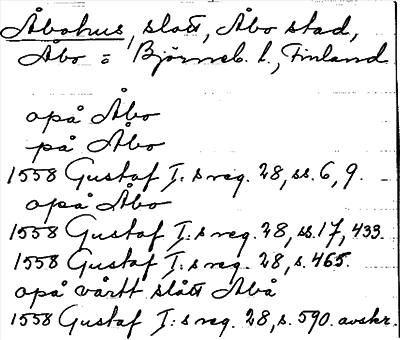 Åbohus, slott, Åbo stad,
Åbo = Björneb. l., Finland
opå Åbo
på Åbo
1558 Gustaf I:s reg. 28, ss. 6, 9.
opå Åbo
1558 Gustaf I:s reg. 28, ss. 17, 433.
1558 Gustaf I:s reg. 28, s. 465.
opå vårtt slått Åbå
1558 Gustaf I:s reg. 28, s. 590. avskr.